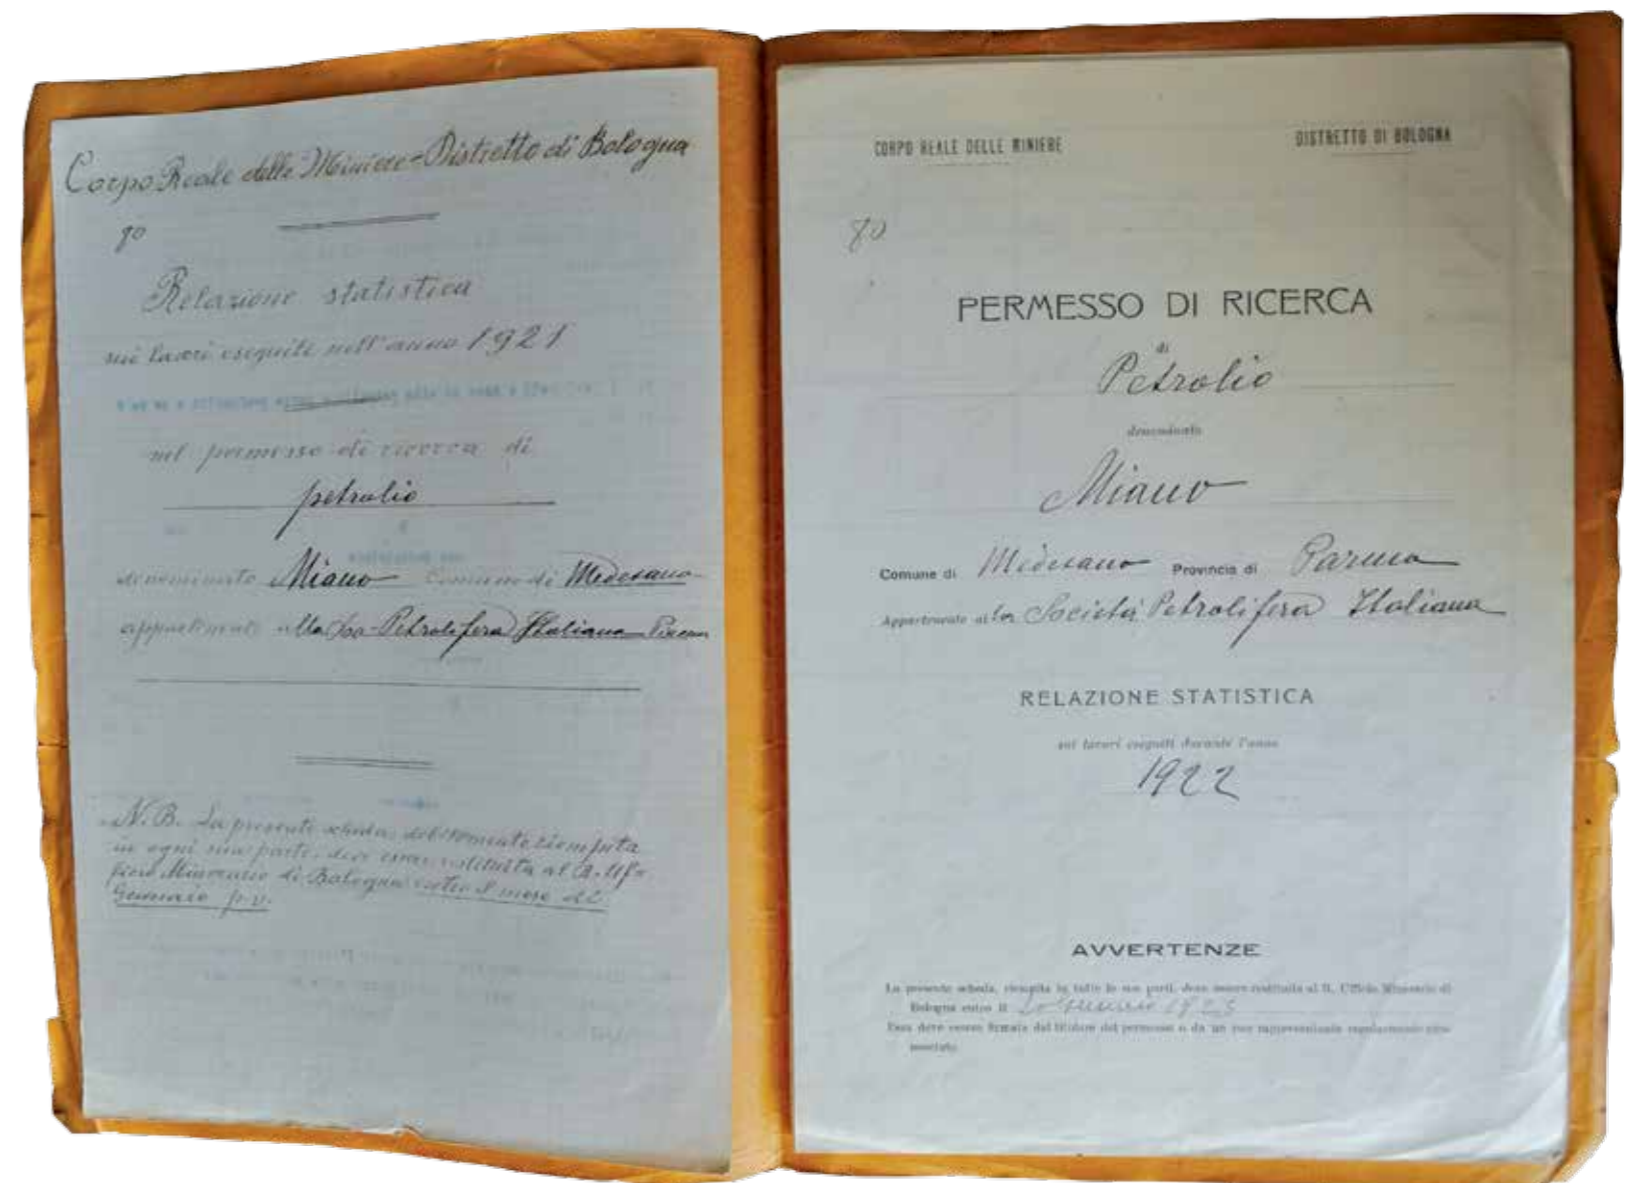 Corpo Reale delle Miniere = Distretto di Bologna
Relazione statistica
sui lavori eseguiti nell'anno 1921
nel permesso di ricerca di
petrolio
denominato Miano Comune di Medesano
appartenente alla Soc. Petrolifera Italiana
N.B. La presente scheda, debitamente riempita
in ogni sua parte, deve essere restituita al R. Uf=
ficio Minerario di Bologna entro il mese di
Gennaio p.v.
CORPO REALE DELLE MINIERE
DISTRETTO DI BOLOGNA
80
PERMESSO DI RICERCA
di
Petrolio
denominato
Miano
Comune di Medesano Provincia di Parma
Appartenente alla Società Petrolifera Italiana
RELAZIONE STATISTICA
sui lavori eseguiti durante l'anno
1922
AVVERTENZE
La presente scheda, riempita in tutte le sue parti, deve essere restituita al R. Ufficio Minerario di
Bologna entro il 20 Gennaio 1923
Essa deve essere firmata dal titolare del permesso o da un suo rappresentante regolarmente rico-
nosciuto.